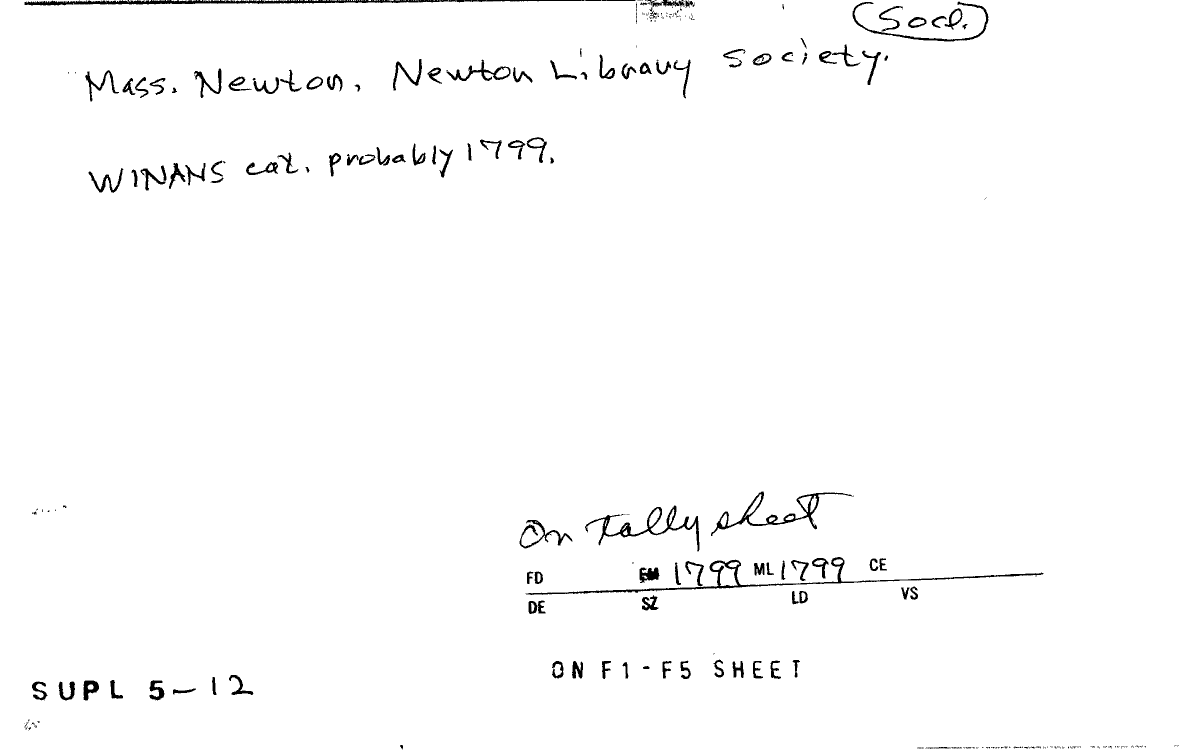 Socl.
Mass. Newton. Newton Library Society.
WINANS cat. probably 1799.
On tally sheet
FD EM 1799 ML 1799 CE
DE SZ LD VS
ON F1-F5 SHEET
SUPL 5-12